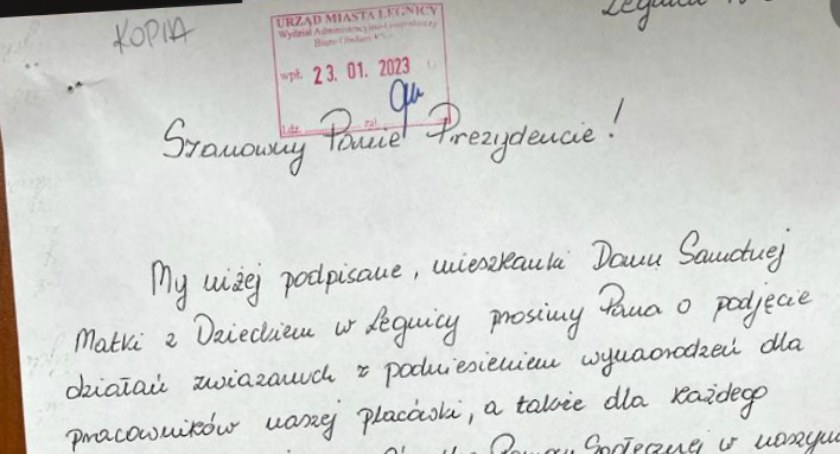 Legnica
KOPIA
URZĄD MIASTA LEGNICY
Wydział Administracyjno-Gospodarczy
Biuro Obsługi
wpł. 23. 01. 2023
Ldz. zał.
Szanowny Panie Prezydencie!
My niżej podpisane, mieszkanki Domu Samotnej
Matki z Dzieckiem w Legnicy prosimy Pana o podjęcie
działań związanych z podniesieniem wynagrodzeń dla
pracowników naszej placówki, a także dla każdego
Pomocy Społecznej w naszym